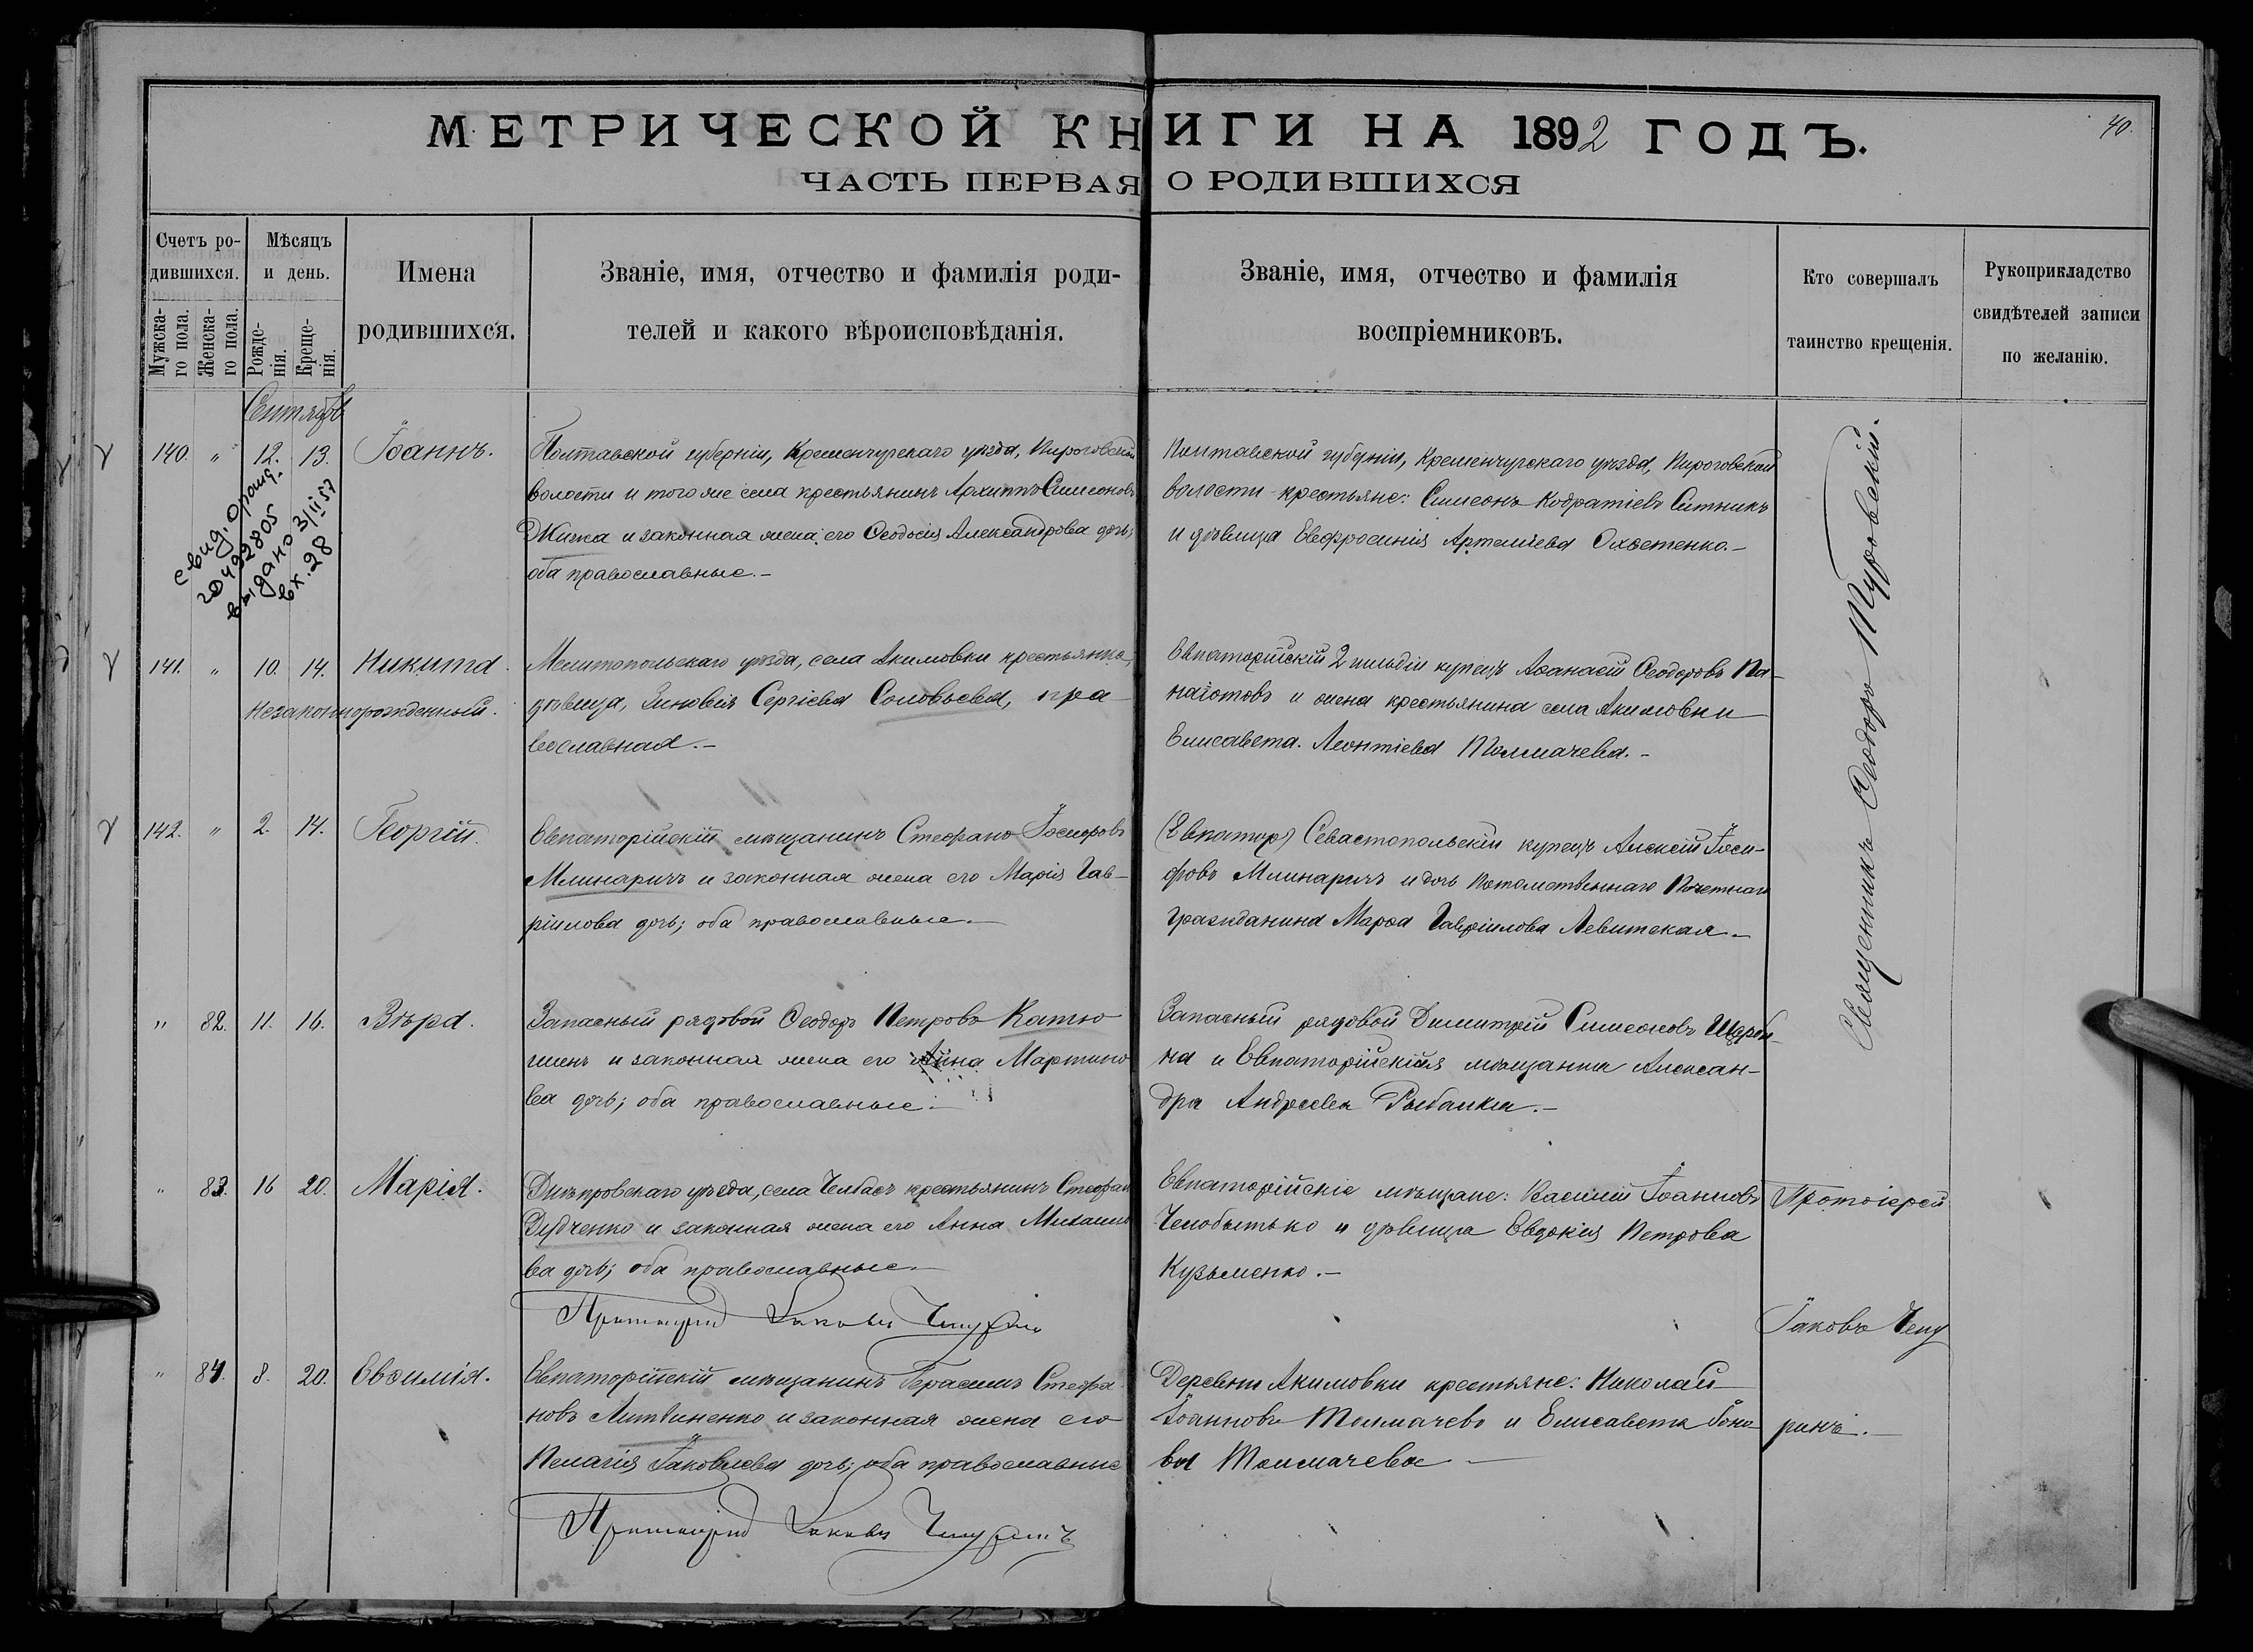 МЕТРИЧЕСКОЙ КНИГИ НА 1892 ГОДЪ.
40.
ЧАСТЬ ПЕРВАЯ О РОДИВШИХСЯ
Счетъ ро-
дившихся.
Мужска-
го пола.
Женска-
го пола.
Мѣсяцъ
и день.
Рожде-
нія.
Креще-
нія.
Имена
родившихся.
Званіе, имя, отчество и фамилія роди-
телей и какого вѣроисповѣданія.
Званіе, имя, отчество и фамилія
воспріемниковъ.
Кто совершалъ
таинство крещенія.
Рукоприкладство
свидѣтелей записи
по желанію.
Сентябрь
140. " 12. 13. Іоаннъ.
свид. о рожд.
492805
выдано 3/II 57
вх. 28
Полтавской губерніи, Кременчугскаго уѣзда, Пироговской
волости и того же села крестьянинъ Архиппъ Симеоновъ
и законная жена его Ѳеодосія Александрова дочь;
оба православные.-
Полтавской губерніи, Кременчугскаго уѣзда, Пироговской
волости крестьяне: Симеонъ Кодратіевъ Ситникъ
и дѣвица Евфросинія Артеміева
Священникъ Ѳеодоръ
141. " 10. 14. Никита.
Незаконнорожденный.
Мелитопольскаго уѣзда, села Акимовки крестьянка,
дѣвица, Зиновія Сергіева Соловьева, пра-
вославная.-
Евпаторійскій 2 гильдіи купецъ Аѳанасій Ѳеодоровъ Па-
наіотовъ и жена крестьянина села Акимовки
Елисавета Леонтіева Толмачева.-
142. " 2. 14. Георгій.
Евпаторійскій мѣщанинъ Стефанъ Іосифовъ
Млинаричъ и законная жена его Марія Гав-
ріилова дочь; оба православные.
(Евпатор) Севастопольскій купецъ Алексій Іоси-
фовъ Млинаричъ и дочь Потомственнаго Почетнаго
гражданина Марѳа Гавріилова Левитская.-
" 82. 11. 16. Вѣра.
Запасный рядовой Ѳеодоръ Петровъ Катю-
и законная жена его Анна Мартино-
ва дочь; оба православные.-
Запасный рядовой Димитрій Симеоновъ Щерби-
на и Евпаторійская мѣщанка Алексан-
дра Андреева Рыбалка.-
" 83. 16 20. Марія.
Днѣпровскаго уѣзда, села Челбасъ крестьянинъ Стефанъ
и законная жена его Анна Михаило-
ва дочь; оба православные.
Протоіерей Іаковъ Чепуринъ
Евпаторійскіе мѣщане: Василій Іоанновъ
Челобытько и дѣвица Евдокія Петрова
Кузьменко.-
Протоіерей
Іаковъ Чепу
ринъ.
" 84. 8. 20. Евѳимія.
Евпаторійскій мѣщанинъ Герасимъ Стефа-
новъ Литвиненко и законная жена его
Пелагія Іаковлева дочь; оба православные
Протоіерей Іаковъ Чепуринъ
Деревни Акимовки крестьяне: Николай
Іоанновъ Толмачевъ и Елисавета
ва Толмачева